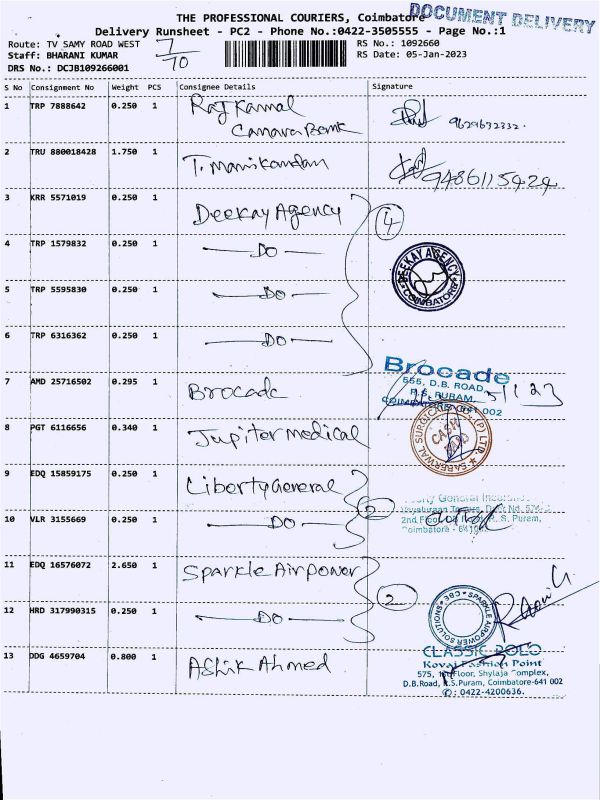 DOCUMENT DELIVERY
THE PROFESSIONAL COURIERS, Coimbatore
Delivery Runsheet - PC2 - Phone No.:0422-3505555 - Page No.:1
Route: TV SAMY ROAD WEST 7/10 RS No.: 1092660
Staff: BHARANI KUMAR RS Date: 05-Jan-2023
DRS No.: DCJB109266001
S No Consignment No Weight PCS Consignee Details Signature
1 TRP 7888642 0.250 1 Raj Kamal
Canara Bank 9629632332.
2 TRU 880018428 1.750 1 T. Manikandan 9486115424
3 KRR 5571019 0.250 1 Deekay Agency 4
4 TRP 1579832 0.250 1 — DO —
DEEKAY AGENCY COIMBATORE
5 TRP 5595830 0.250 1 — DO —
6 TRP 6316362 0.250 1 — DO —
Brocade
555, D.B. ROAD,
7 AMD 25716502 0.295 1 Brocade R.S. PURAM,
COIMBATORE 641 002
8 PGT 6116656 0.340 1 Jupiter medical
CASH PAID
9 EDQ 15859175 0.250 1 Liberty General 2
10 VLR 3155669 0.250 1 — DO —
2nd Floor R.S. Puram,
Coimbatore -
11 EDQ 16576072 2.650 1 Sparkle Airpower 2
12 HRD 317990315 0.250 1 — DO —
SPARKLE AIRPOWER SOLUTIONS CBE
13 DDG 4659704 0.800 1 Ashik Ahmed
CLASSIC POLO
Kovai Fashion Point
575, 1st Floor, Shylaja Complex,
D.B.Road, R.S.Puram, Coimbatore-641 002
✆: 0422-4200636.